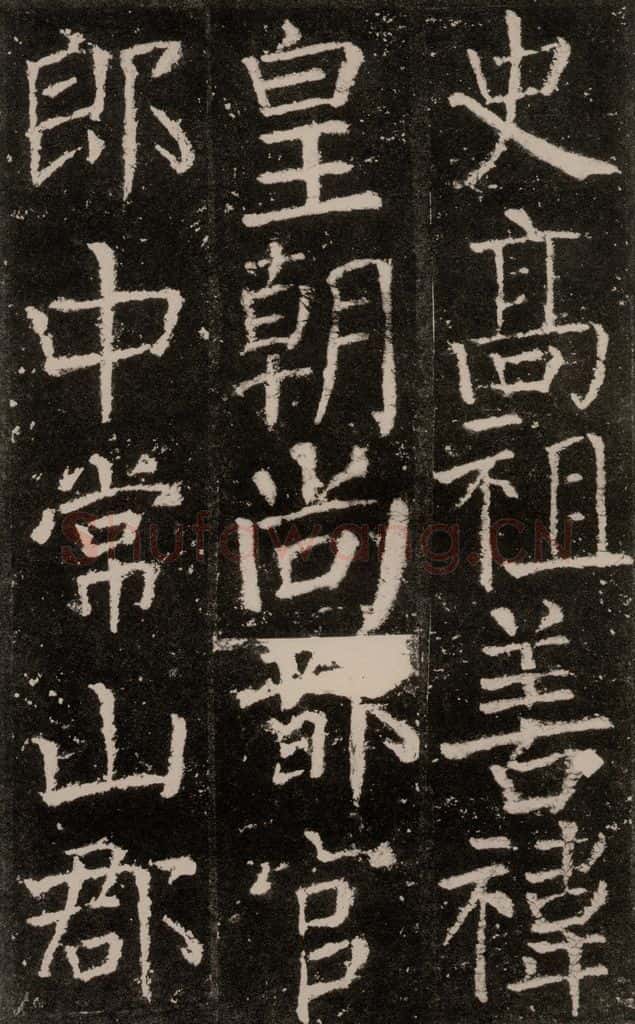 史高祖善禕
皇朝尚都官
郎中常山郡
Shufawang.CN